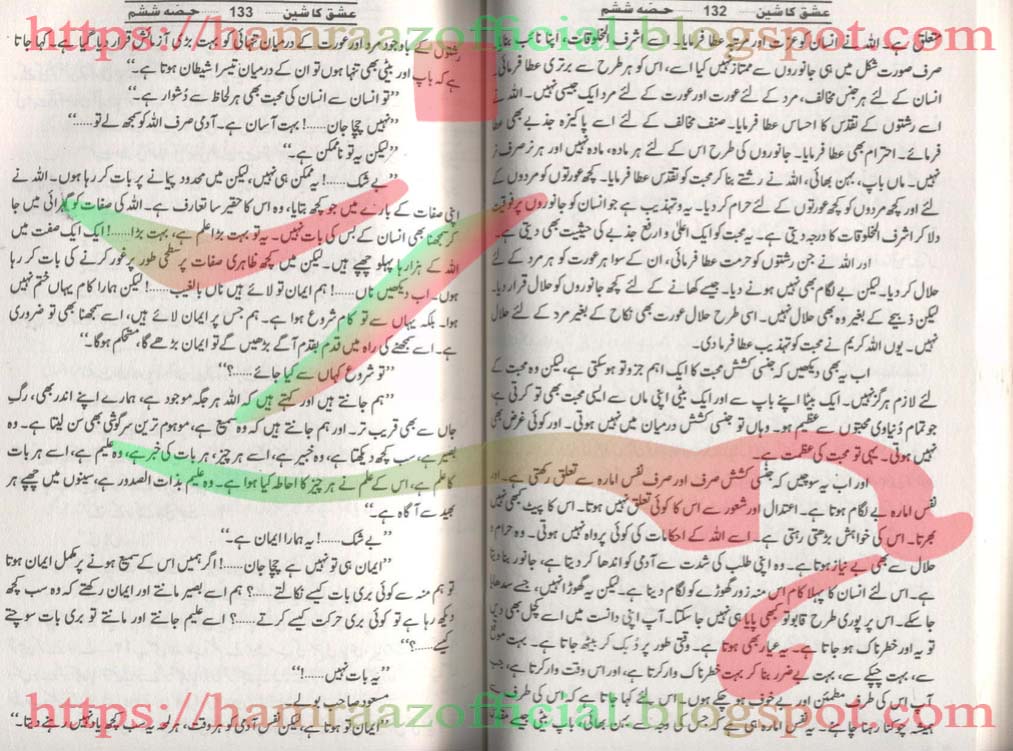 عشق کا شین ....... 132 ....... حصہ ششم
متعلق ہے۔ اللہ نے انسان کو عزت اور مرتبہ عطا فرمایا۔ اسے اشرف المخلوقات، اپنا نائب بنایا۔
صرف صورت شکل میں ہی جانوروں سے ممتاز نہیں کیا اسے، اس کو ہر طرح سے برتری عطا فرمائی۔
انسان کے لئے ہر جنس مخالف، مرد کے لئے عورت اور عورت کے لئے مرد ایک جیسی نہیں۔ اللہ نے
اسے رشتوں کے تقدس کا احساس عطا فرمایا۔ صنف مخالف کے لئے اسے پاکیزہ جذبے بھی عطا
فرمائے۔ احترام بھی عطا فرمایا۔ جانوروں کی طرح اس کے لئے ہر مادہ، مادہ نہیں اور ہر نر صرف نر
نہیں۔ ماں باپ، بہن بھائی، اللہ نے رشتے بنا کر محبت کو تقدس عطا فرمایا۔ کچھ عورتوں کو مردوں کے
لئے اور کچھ مردوں کو کچھ عورتوں کے لئے حرام کر دیا۔ یہ وہ تہذیب ہے جو انسان کو جانوروں پر فوقیت
دلا کر اشرف المخلوقات کا درجہ دیتی ہے۔ یہ محبت کو ایک اعلیٰ و ارفع جذبے کی حیثیت بھی دیتی ہے۔
اور اللہ نے جن رشتوں کو حرمت عطا فرمائی، ان کے سوا ہر عورت کو ہر مرد کے لئے
حلال کر دیا۔ لیکن بے لگام بھی نہیں ہونے دیا۔ جیسے کھانے کے لئے کچھ جانوروں کو حلال قرار دیا۔
لیکن ذبیحے کے بغیر وہ بھی حلال نہیں۔ اسی طرح حلال عورت بھی نکاح کے بغیر مرد کے لئے حلال
نہیں۔ یوں اللہ کریم نے محبت کو تہذیب عطا فرما دی۔
اب یہ بھی دیکھیں کہ جنسی کشش محبت کا ایک اہم جزو تو ہو سکتی ہے، لیکن وہ محبت کے
لئے لازم ہرگز نہیں۔ ایک بیٹا اپنے باپ سے اور ایک بیٹی اپنی ماں سے ایسی محبت بھی تو کرتی ہے
جو تمام دنیاوی محبتوں سے عظیم ہو۔ وہاں تو جنسی کشش درمیان میں نہیں ہوتی۔ اور کوئی غرض بھی
نہیں ہوتی۔ یہی تو محبت کی عظمت ہے۔
اور اب یہ سوچیں کہ جنسی کشش صرف اور صرف نفس امارہ سے تعلق رکھتی ہے۔ اور
نفس امارہ بے لگام ہوتا ہے۔ اعتدال اور شعور سے اس کا کوئی تعلق نہیں ہوتا۔ اس کا پیٹ کبھی نہیں
بھرتا۔ اس کی خواہش بڑھتی رہتی ہے۔ اسے اللہ کے احکامات کی کوئی پرواہ نہیں ہوتی۔ وہ حرام و
حلال سے بھی بے نیاز ہوتا ہے۔ وہ اپنی طلب کی شدت سے آدمی کو اندھا کر دیتا ہے، جانور بنا دیتا
ہے۔ اس لئے انسان کا پہلا کام اس منہ زور گھوڑے کو لگام دینا ہے۔ لیکن یہ گھوڑا نہیں، جسے سدھایا
جا سکے۔ اس پر پوری طرح قابو تو کبھی پایا ہی نہیں جا سکتا۔ آپ اپنی دانست میں اسے کچل بھی دیں
تو یہ اور خطرناک ہو جاتا ہے۔ یہ عیار بھی ہوتا ہے۔ وقتی طور پر دُبک کر بیٹھ جاتا ہے۔ بہت
سے، بہت چپکے سے۔ بہت بے ضرر بنا کر بہت خطرناک وار کرتا ہے، اور اس وقت وار کرتا ہے، جب
آپ اس کی طرف سے مطمئن اور بے خوف ہو چکے ہوں۔ اس لئے کہا جاتا ہے کہ اس کی طرف سے
ہمیشہ چوکنا رہنا چاہئے۔ یہ نفس امارہ ہی ہے کہ جس کی وجہ سے بہن بھائی، باپ بیٹی جیسے
عشق کا شین ....... 133 ....... حصہ ششم
رشتوں کے باوجود مرد اور عورت کے درمیان تنہائی کو بہت بڑی آزمائش قرار دیا گیا ہے۔ کہا جاتا
ہے کہ باپ اور بیٹی بھی تنہا ہوں تو ان کے درمیان تیسرا شیطان ہوتا ہے۔“
”تو انسان سے انسان کی محبت بھی ہر لحاظ سے دُشوار ہے۔“
”نہیں چچا جان.....! بہت آسان ہے۔ آدمی صرف اللہ کو سمجھ لے تو.....“
”لیکن یہ تو ناممکن ہے۔“
”بے شک.....! یہ ممکن ہی نہیں، لیکن میں محدود پیمانے پر بات کر رہا ہوں۔ اللہ نے
اپنی صفات کے بارے میں جو کچھ بتایا، وہ اس کا حقیر سا تعارف ہے۔ اللہ کی صفات کو گہرائی میں جا
کر سمجھنا بھی انسان کے بس کی بات نہیں۔ یہ تو بہت بڑا علم ہے، بہت بڑا.....! ایک ایک صفت میں
اللہ کے ہزارہا پہلو چھپے ہیں۔ لیکن میں کچھ ظاہری صفات پر سطحی طور پر غور کرنے کی بات کر رہا
ہوں۔ اب دیکھیں ناں.....! ہم ایمان تو لائے ہیں ناں بالغیب.....! لیکن ہمارا کام یہاں ختم نہیں
ہوا۔ بلکہ یہاں سے تو کام شروع ہوا ہے۔ ہم جس پر ایمان لائے ہیں، اسے سمجھنا بھی تو ضروری
ہے۔ اسے سمجھنے کی راہ میں قدم بقدم آگے بڑھیں گے تو ایمان بڑھے گا، مستحکم ہو گا۔“
”تو شروع کہاں سے کیا جائے.....؟“
”ہم جانتے ہیں اور کہتے ہیں کہ اللہ ہر جگہ موجود ہے، ہمارے اپنے اندر بھی، رگِ
جاں سے بھی قریب تر۔ اور ہم جانتے ہیں کہ وہ سمیع ہے، موہوم ترین سرگوشی بھی سن لیتا ہے۔ وہ
بصیر ہے، سب کچھ دیکھتا ہے، وہ خبیر ہے، اسے ہر چیز، ہر بات کی خبر ہے، وہ علیم ہے، اسے ہر بات
کا علم ہے، اس کے علم نے ہر چیز کا احاطہ کیا ہوا ہے۔ وہ علیم بذات الصدور ہے، سینوں میں چھپے ہر
بھید سے آگاہ ہے۔“
”بے شک.....! یہ ہمارا ایمان ہے۔“
”ایمان ہی تو نہیں ہے چچا جان.....! اگر ہمیں اس کے سمیع ہونے پر مکمل ایمان ہوتا
تو ہم منہ سے کوئی بری بات کیسے نکالتے.....؟ ہم اسے بصیر مانتے اور ایمان رکھتے کہ وہ سب کچھ
دیکھ رہا ہے تو کوئی بری حرکت کیسے کرتے.....؟ اسے علیم جانتے اور مانتے تو بری بات سوچتے
کیسے.....؟“
”یہ بات نہیں.....!“
مسعود صاحب بولے۔
”ایمان ہوتا ہے، لیکن نفس آدمی کو ہر وقت، ہر لمحہ یہ سب کچھ یاد نہیں رہنے دیتا۔“
https://hamraazofficial.blogspot.com
https://hamraazofficial.blogspot.com